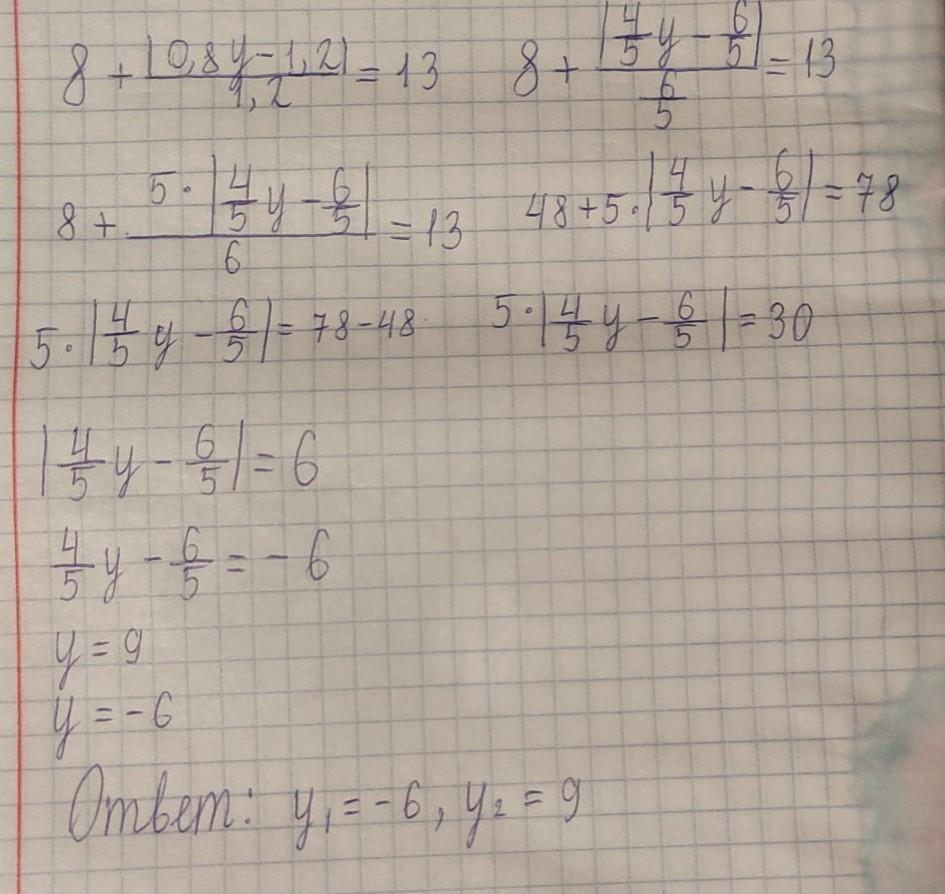 8 + |0,8y - 1,2| / 1,2 = 13    8 + |4/5 y - 6/5| / (6/5) = 13
8 + 5 · |4/5 y - 6/5| / 6 = 13    48 + 5 · |4/5 y - 6/5| = 78
5 · |4/5 y - 6/5| = 78 - 48    5 · |4/5 y - 6/5| = 30
|4/5 y - 6/5| = 6
4/5 y - 6/5 = - 6
y = 9
y = -6
Ответ: y₁ = -6, y₂ = 9